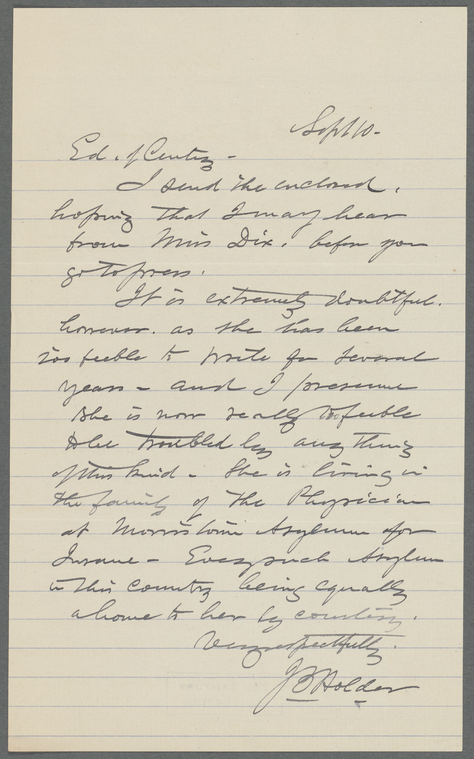 Sept 10-
Ed. of Century -
I send the enclosed,
hoping that I may hear
from Miss Dix, before you
go to press.
It is extremely doubtful.
however. as she has been
too feeble to write for several
years - and I presume
she is now really too feeble
to be troubled by any thing
of this kind - She is living in
the family of the Physician
at Morristown Asylum for
Insane - Every such Asylum
in this country being equally
a home to her by courtesy.
Very respectfully.
J B Holder